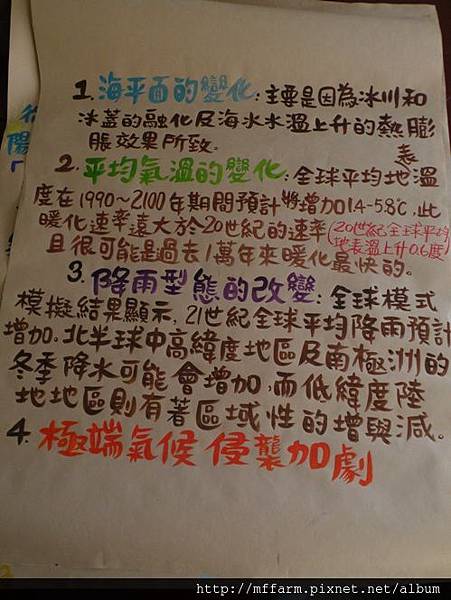 1. 海平面的變化:主要是因為冰川和
冰蓋的融化及海水水溫上升的熱膨
脹效果所致。
2. 平均氣溫的變化:全球平均地表溫
度在1990~2100年期間預計將增加1.4-5.8℃,此
暖化速率遠大於20世紀的速率(20世紀全球平均
地表溫上升0.6度)
且很可能是過去1萬年來暖化最快的。
3. 降雨型態的改變:全球模式
模擬結果顯示,21世紀全球平均降雨預計
增加.北半球中高緯度地區及南極洲的
冬季降水可能會增加,而低緯度陸
地地區則有著區域性的增與減。
4. 極端氣候侵襲加劇
http://mffarm.pixnet.net/album